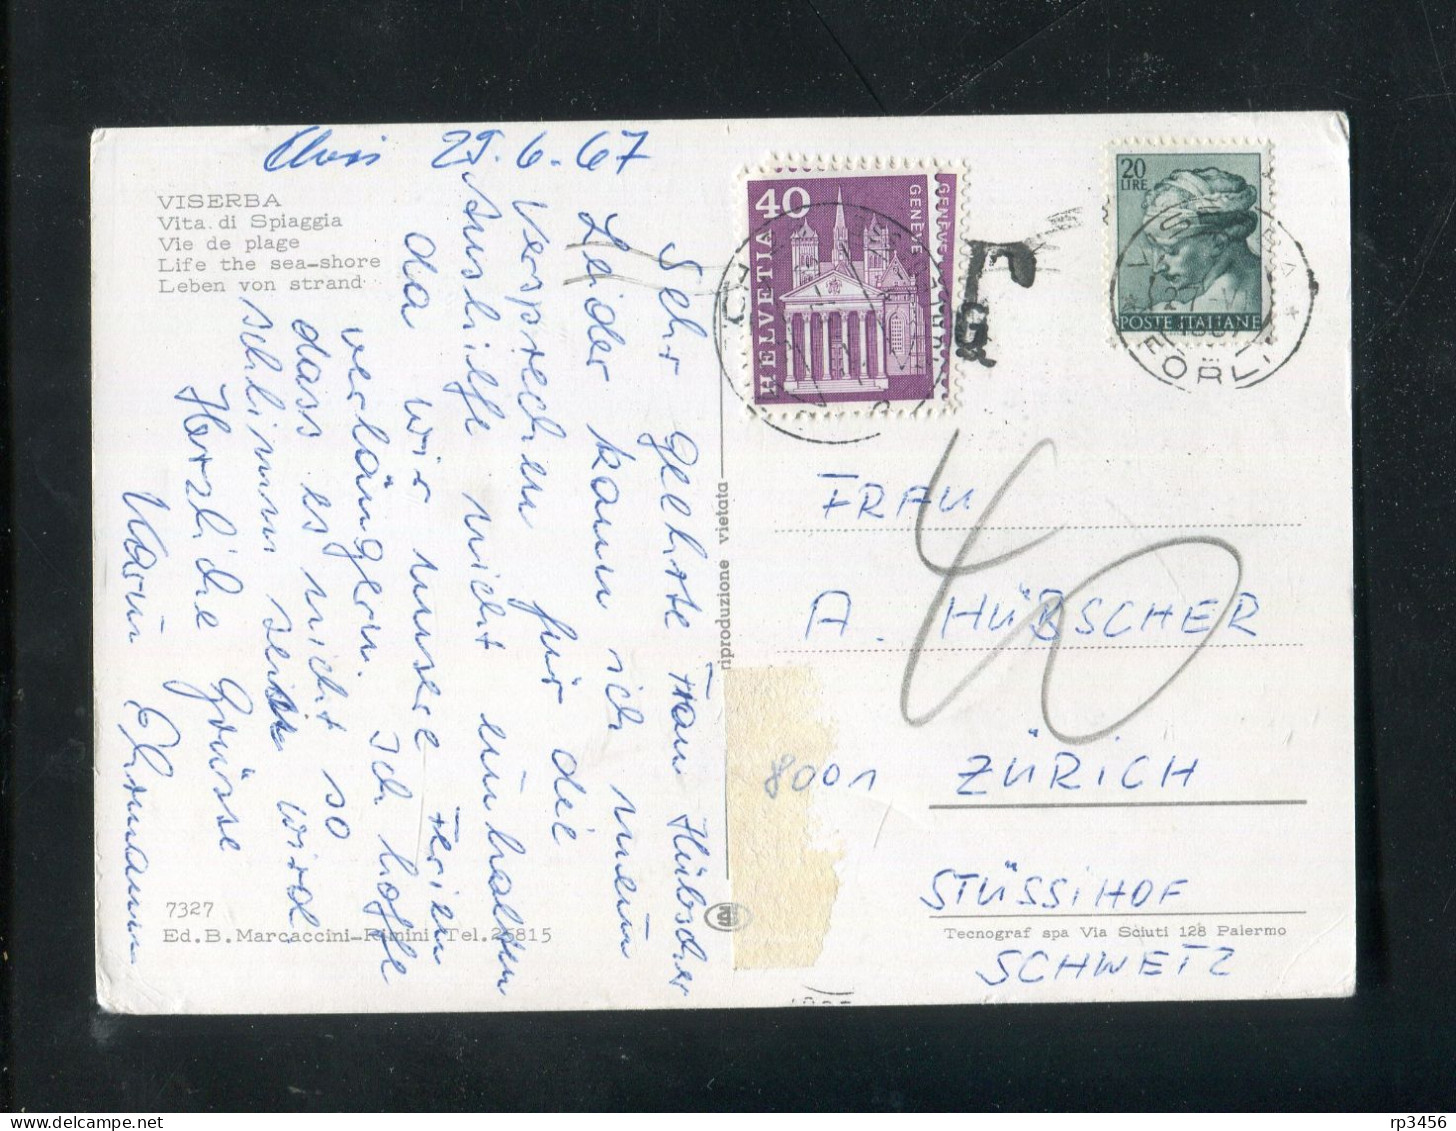 29.6.67
VISERBA
Vita di Spiaggia
Vie de plage
Life the sea-shore
Leben von strand
Sehr geehrte Frau Hübscher
Leider kann ich mein
Versprechen für die
Aushilfe nicht einhalten
da wir unsere Ferien
verlängern. Ich hoffe
dass es nicht so
schlimm sein wird.
Herzliche Grüsse
Karin
7327
Ed.B.Marcaccini-Rimini Tel.25815
riproduzione vietata
40
HELVETIA
GENEVE
GENEVE
T
20
LIRE
POSTE ITALIANE
FORLI
40
FRAU
A. HÜBSCHER
8001 ZÜRICH
STÜSSIHOF
Tecnograf spa Via Sciuti 128 Palermo
SCHWEIZ
rp3456